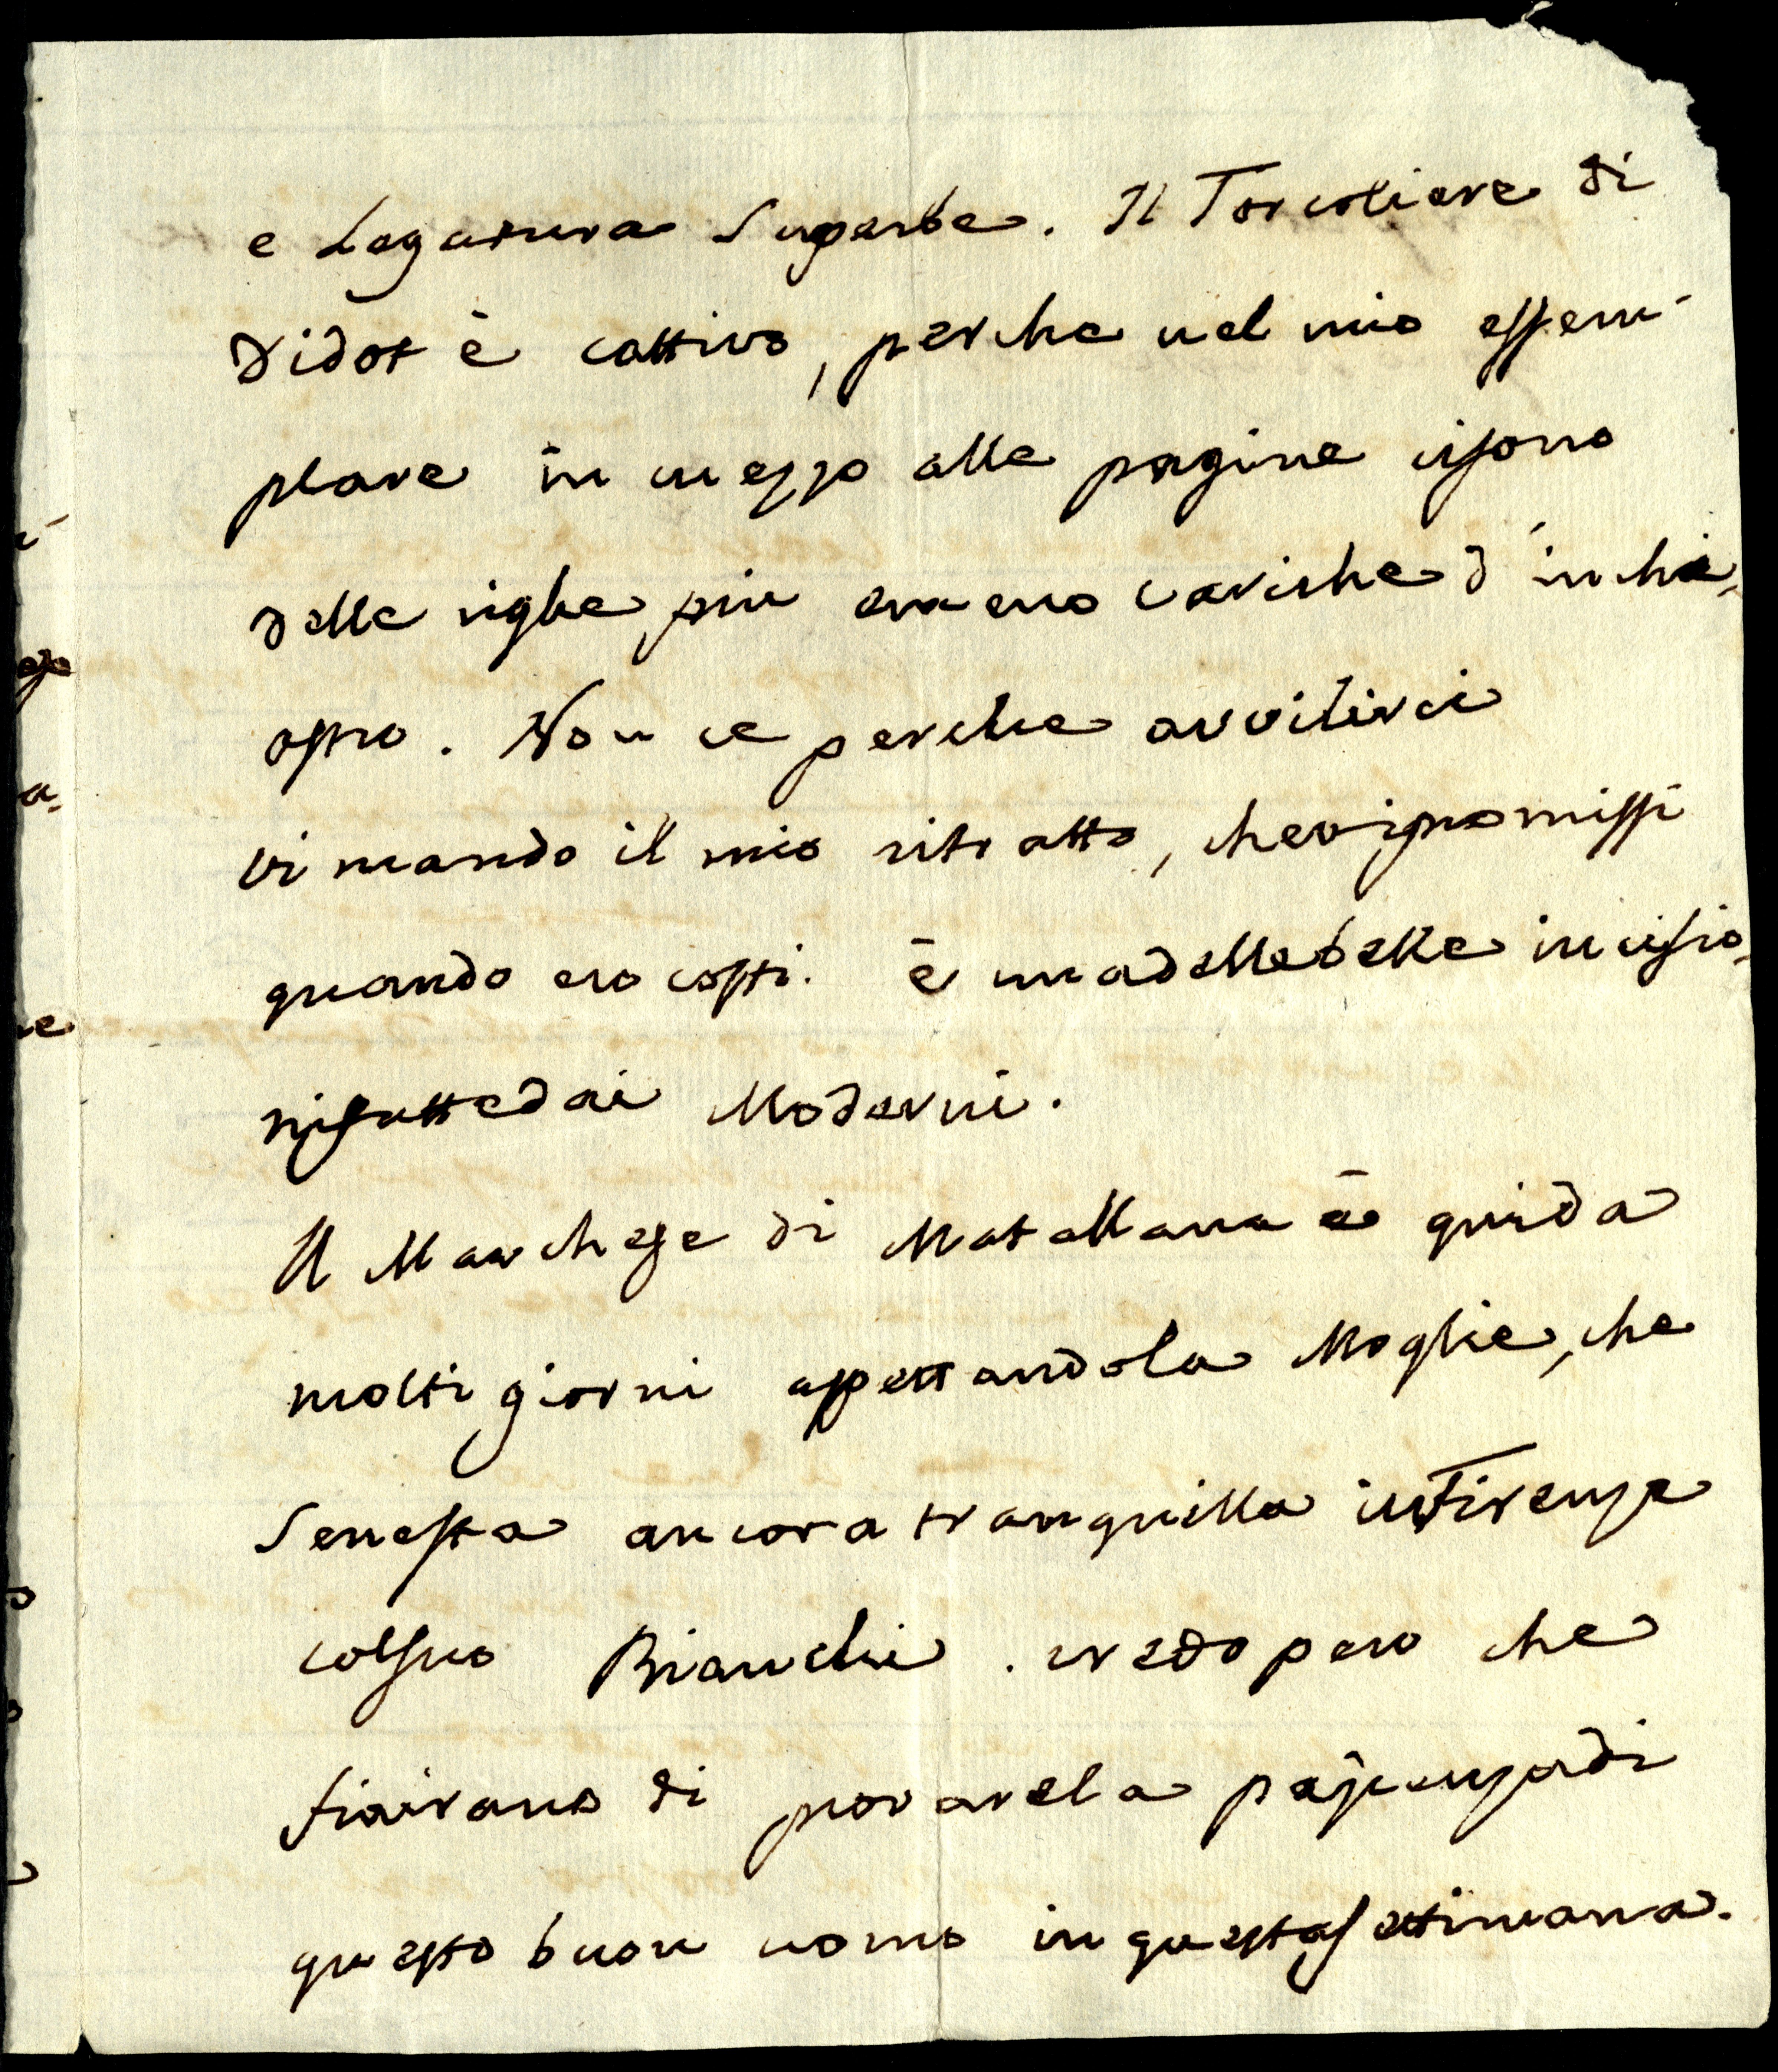 e Legatura Superbe. Il Torcoliere di
Didot è cattivo, perche nel mio essem-
plare in mezzo alle pagine visono
delle righe piu omeno cariche d'inchi-
ostro. Non ce perche avvilirci
vi mando il mio ritratto, chevipromissi
quando ero costi. è unadellebelle incisio-
nifattedai Moderni.
Il Marchese di Matallana è quida
molti giorni aspettandola Moglie, che
Senesta ancora tranquilla inFirenze
colsuo Bianchi. credo pero che
finirano di provarela pazienzadi
questo buon uomo in questasettimana.